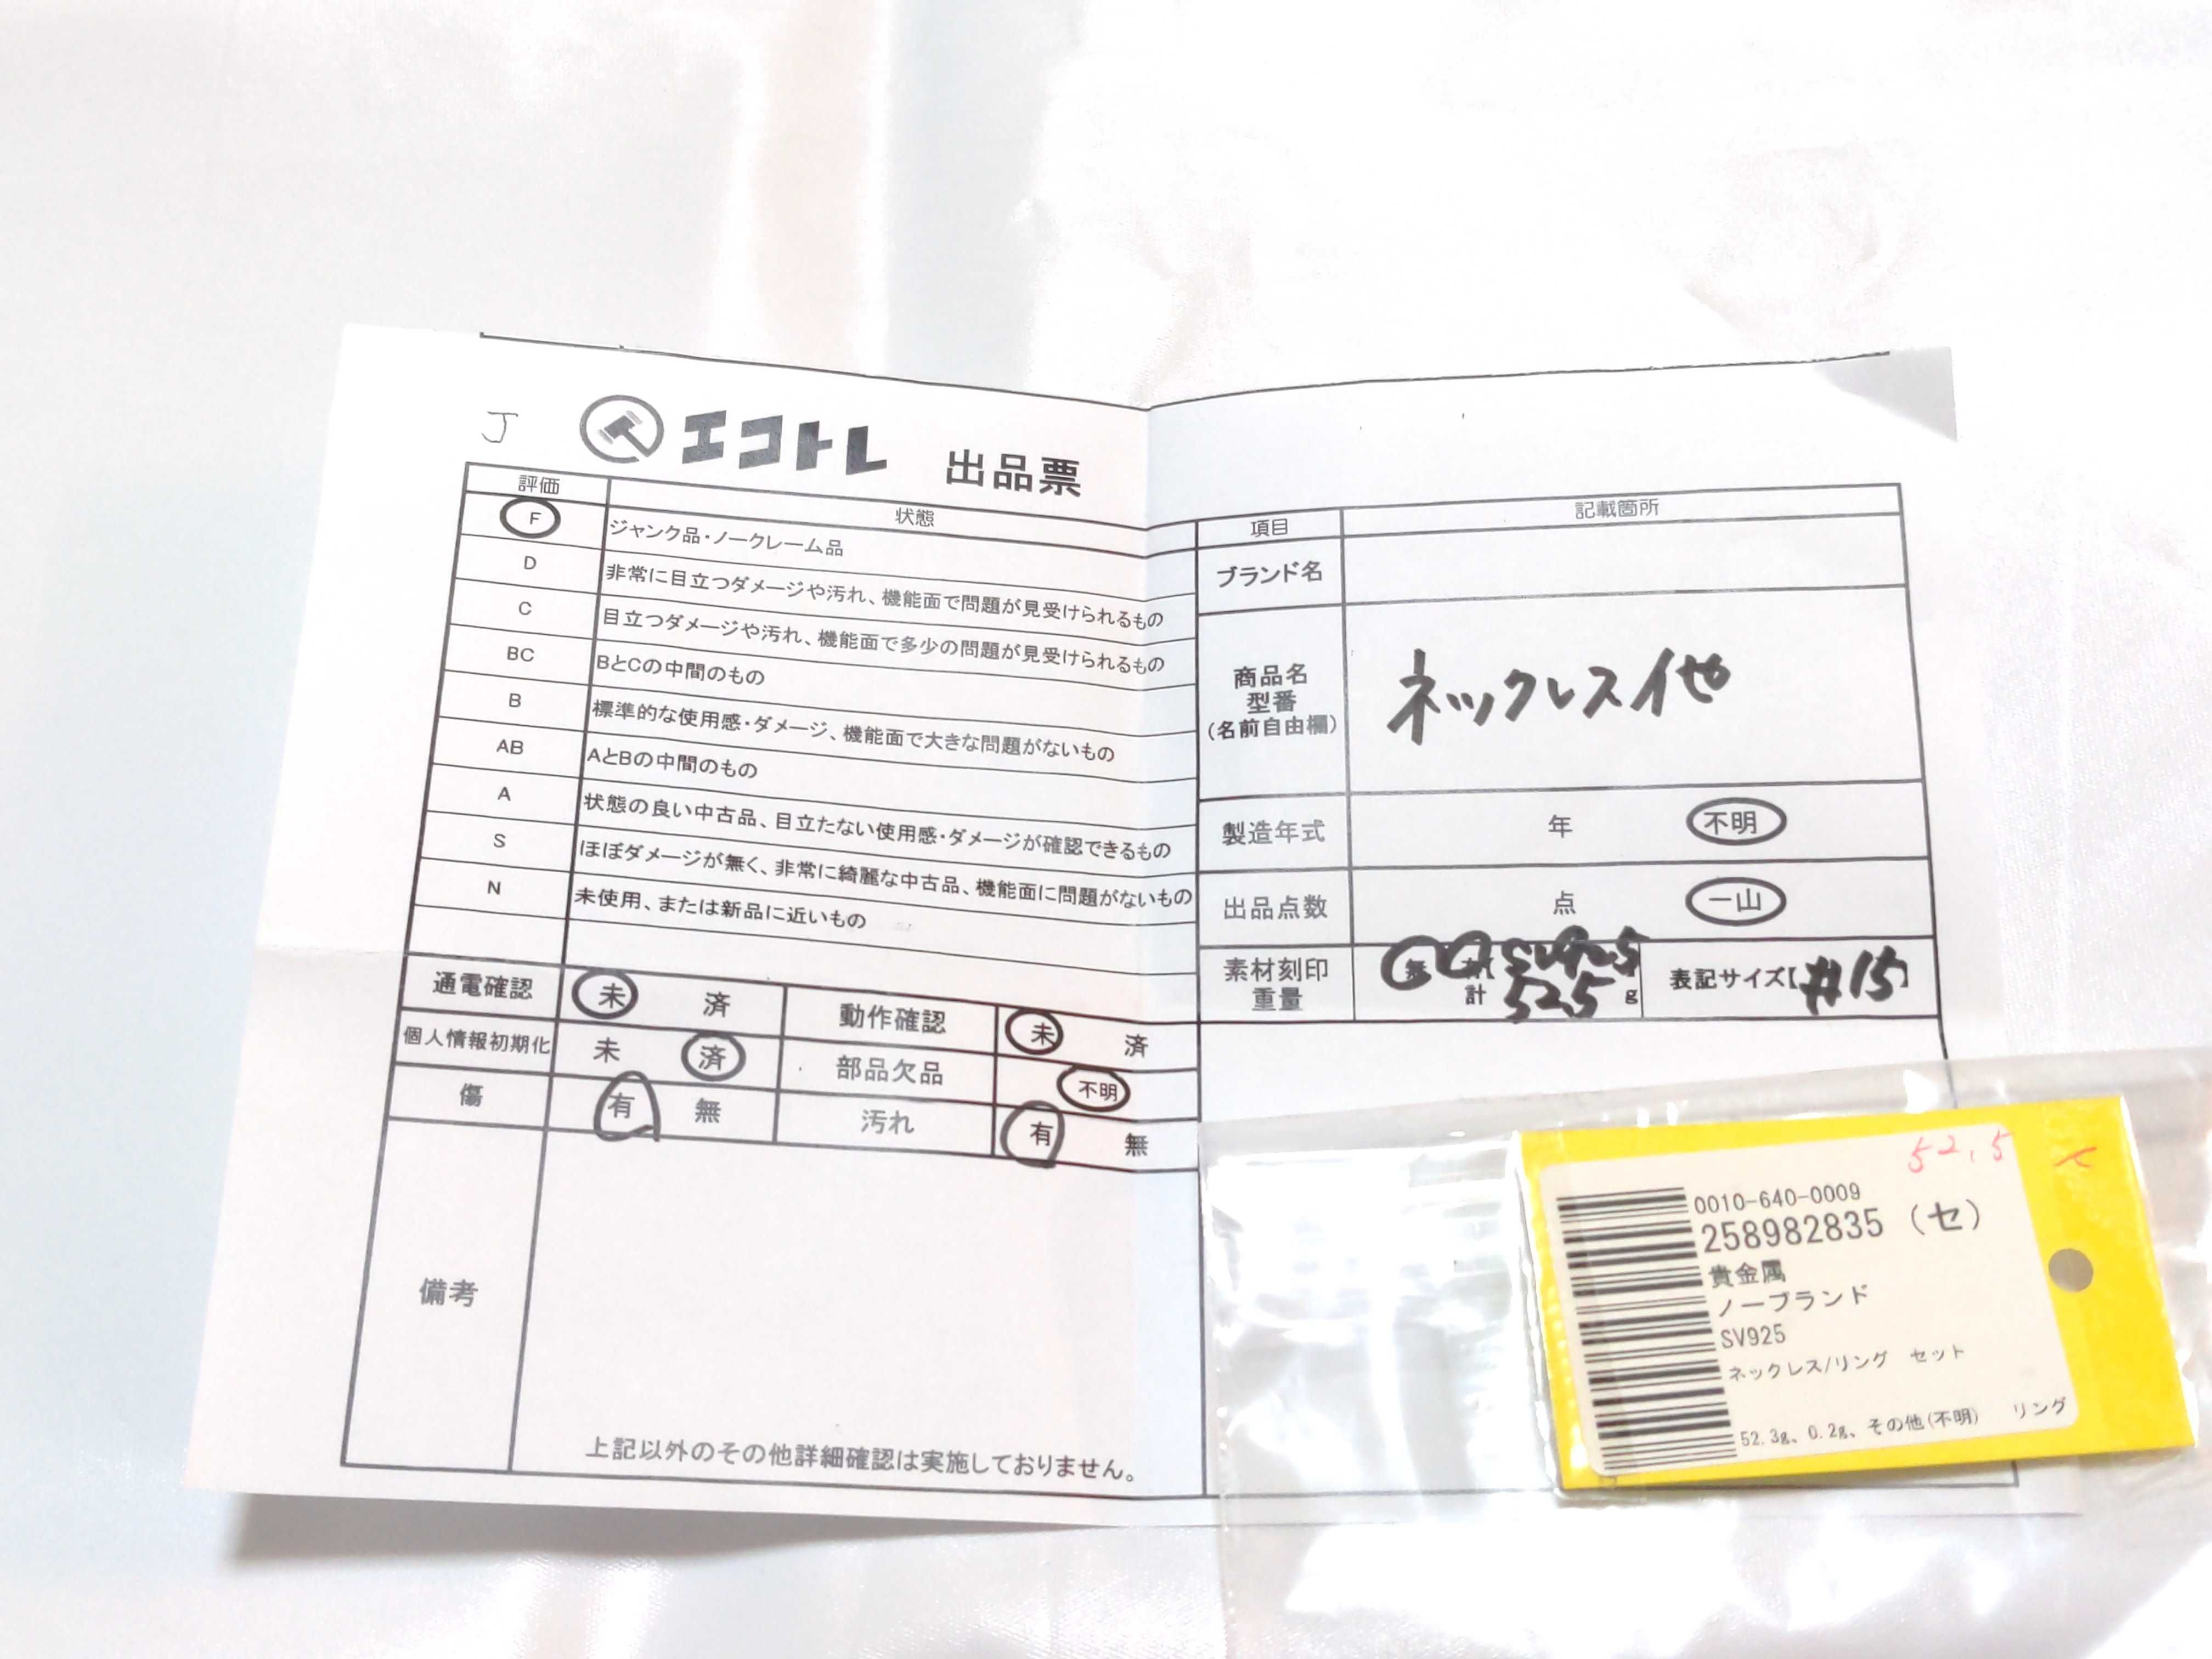 J
エコトレ 出品票
評価 状態
F ジャンク品・ノークレーム品
D 非常に目立つダメージや汚れ、機能面で問題が見受けられるもの
C 目立つダメージや汚れ、機能面で多少の問題が見受けられるもの
BC BとCの中間のもの
B 標準的な使用感・ダメージ、機能面で大きな問題がないもの
AB AとBの中間のもの
A 状態の良い中古品、目立たない使用感・ダメージが確認できるもの
S ほぼダメージが無く、非常に綺麗な中古品、機能面に問題がないもの
N 未使用、または新品に近いもの
通電確認 未 済 動作確認 未 済
個人情報初期化 未 済 部品欠品 不明
傷 有 無 汚れ 有 無
備考
上記以外のその他詳細確認は実施しておりません。
項目 記載箇所
ブランド名
商品名
型番
(名前自由欄)
ネックレス他
製造年式 年 不明
出品点数 点 一山
素材刻印 無 SV925
重量 計 52.5 g
表記サイズ【#15】
52.5
0010-640-0009
258982835 (セ)
貴金属
ノーブランド
SV925
ネックレス/リング セット
52.3g、0.2g、その他(不明) リング